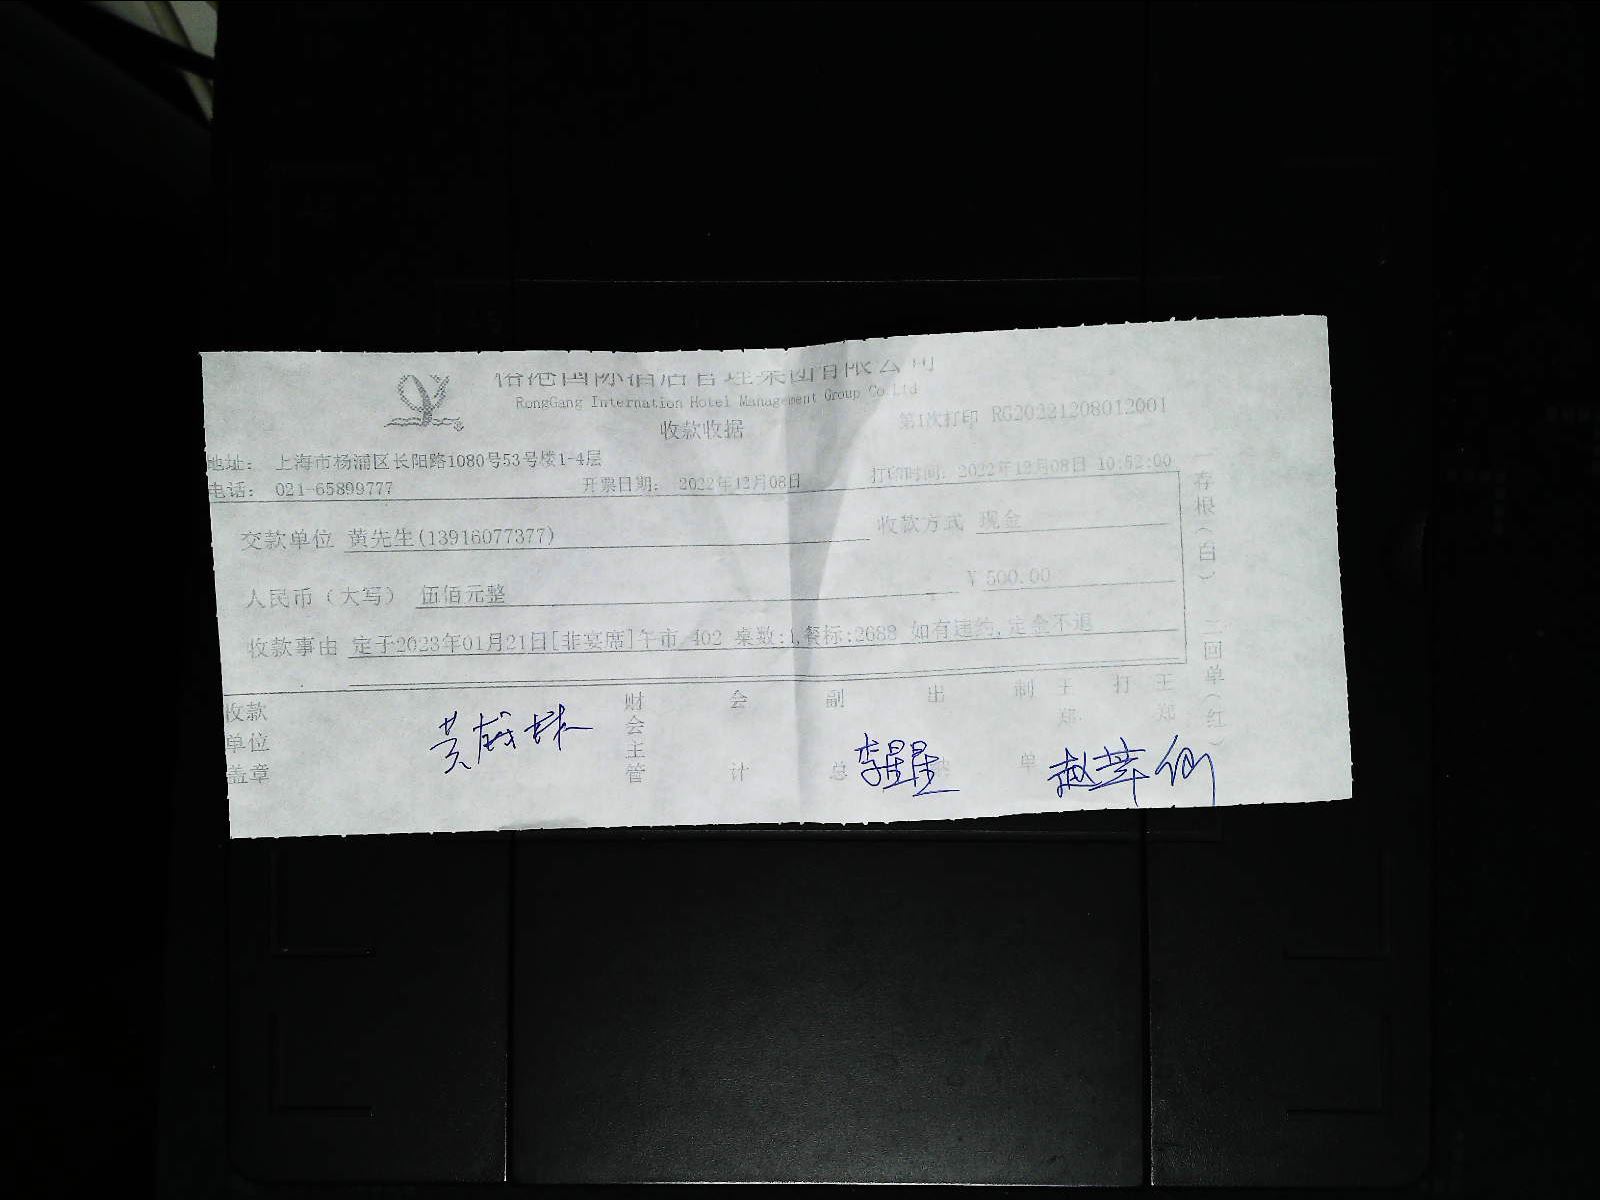 国际酒店管理集团有限公司
RongGang Internation Hotel Management Group Co.Ltd
收款收据
第1次打印 RG20221208012001
地址： 上海市杨浦区长阳路1080号53号楼1-4层
电话： 021-65899777 开票日期： 2022年12月08日 打印时间: 2022年12月08日 10:52:00
交款单位 黄先生(13916077377) 收款方式 现金
人民币（大写） 伍佰元整 ￥500.00
收款事由 定于2023年01月21日[非宴席]午市 402 桌数:1,餐标:2688 如有违约,定金不退
收款单位盖章
财会主管
会计
副总
出纳
制单 王郑
打 王郑
李星星
存根(白)
二回单(红)